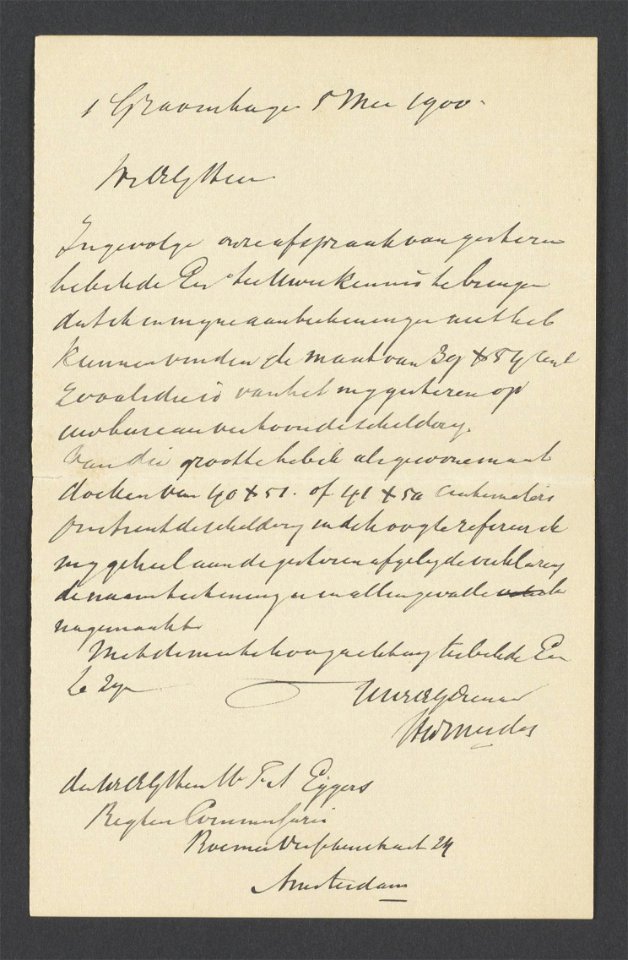 s Gravenhage 5 Mei 1900.
WelEdGHeer
Ingevolge onze afspraak van gisteren
heb ik de Eer te Uwer kennis te brengen
dat ik in mijne aanteekeningen niet heb
kunnen vinden de maat van 39 x 54 cent
zooals die is van het mij gisteren op
uw bureau vertoonde schilderij.
Van die grootte heb ik als gewone maat
doeken van 40 x 51. of 41 x 52 centimeters
Omtrent de schilderij in de hoogte refereer ik
mij geheel aan de gisteren afgelegde verklaring
de naamteekening is in allen gevalle
nagemaakt
Met de meeste hoogachting heb ik de Eer
te zijn
UWEdGDienaar
HWMesdag
den WelEdGHeer Mr Eggers
Regter Commissaris
Roemer Visscherstraat 24
Amsterdam